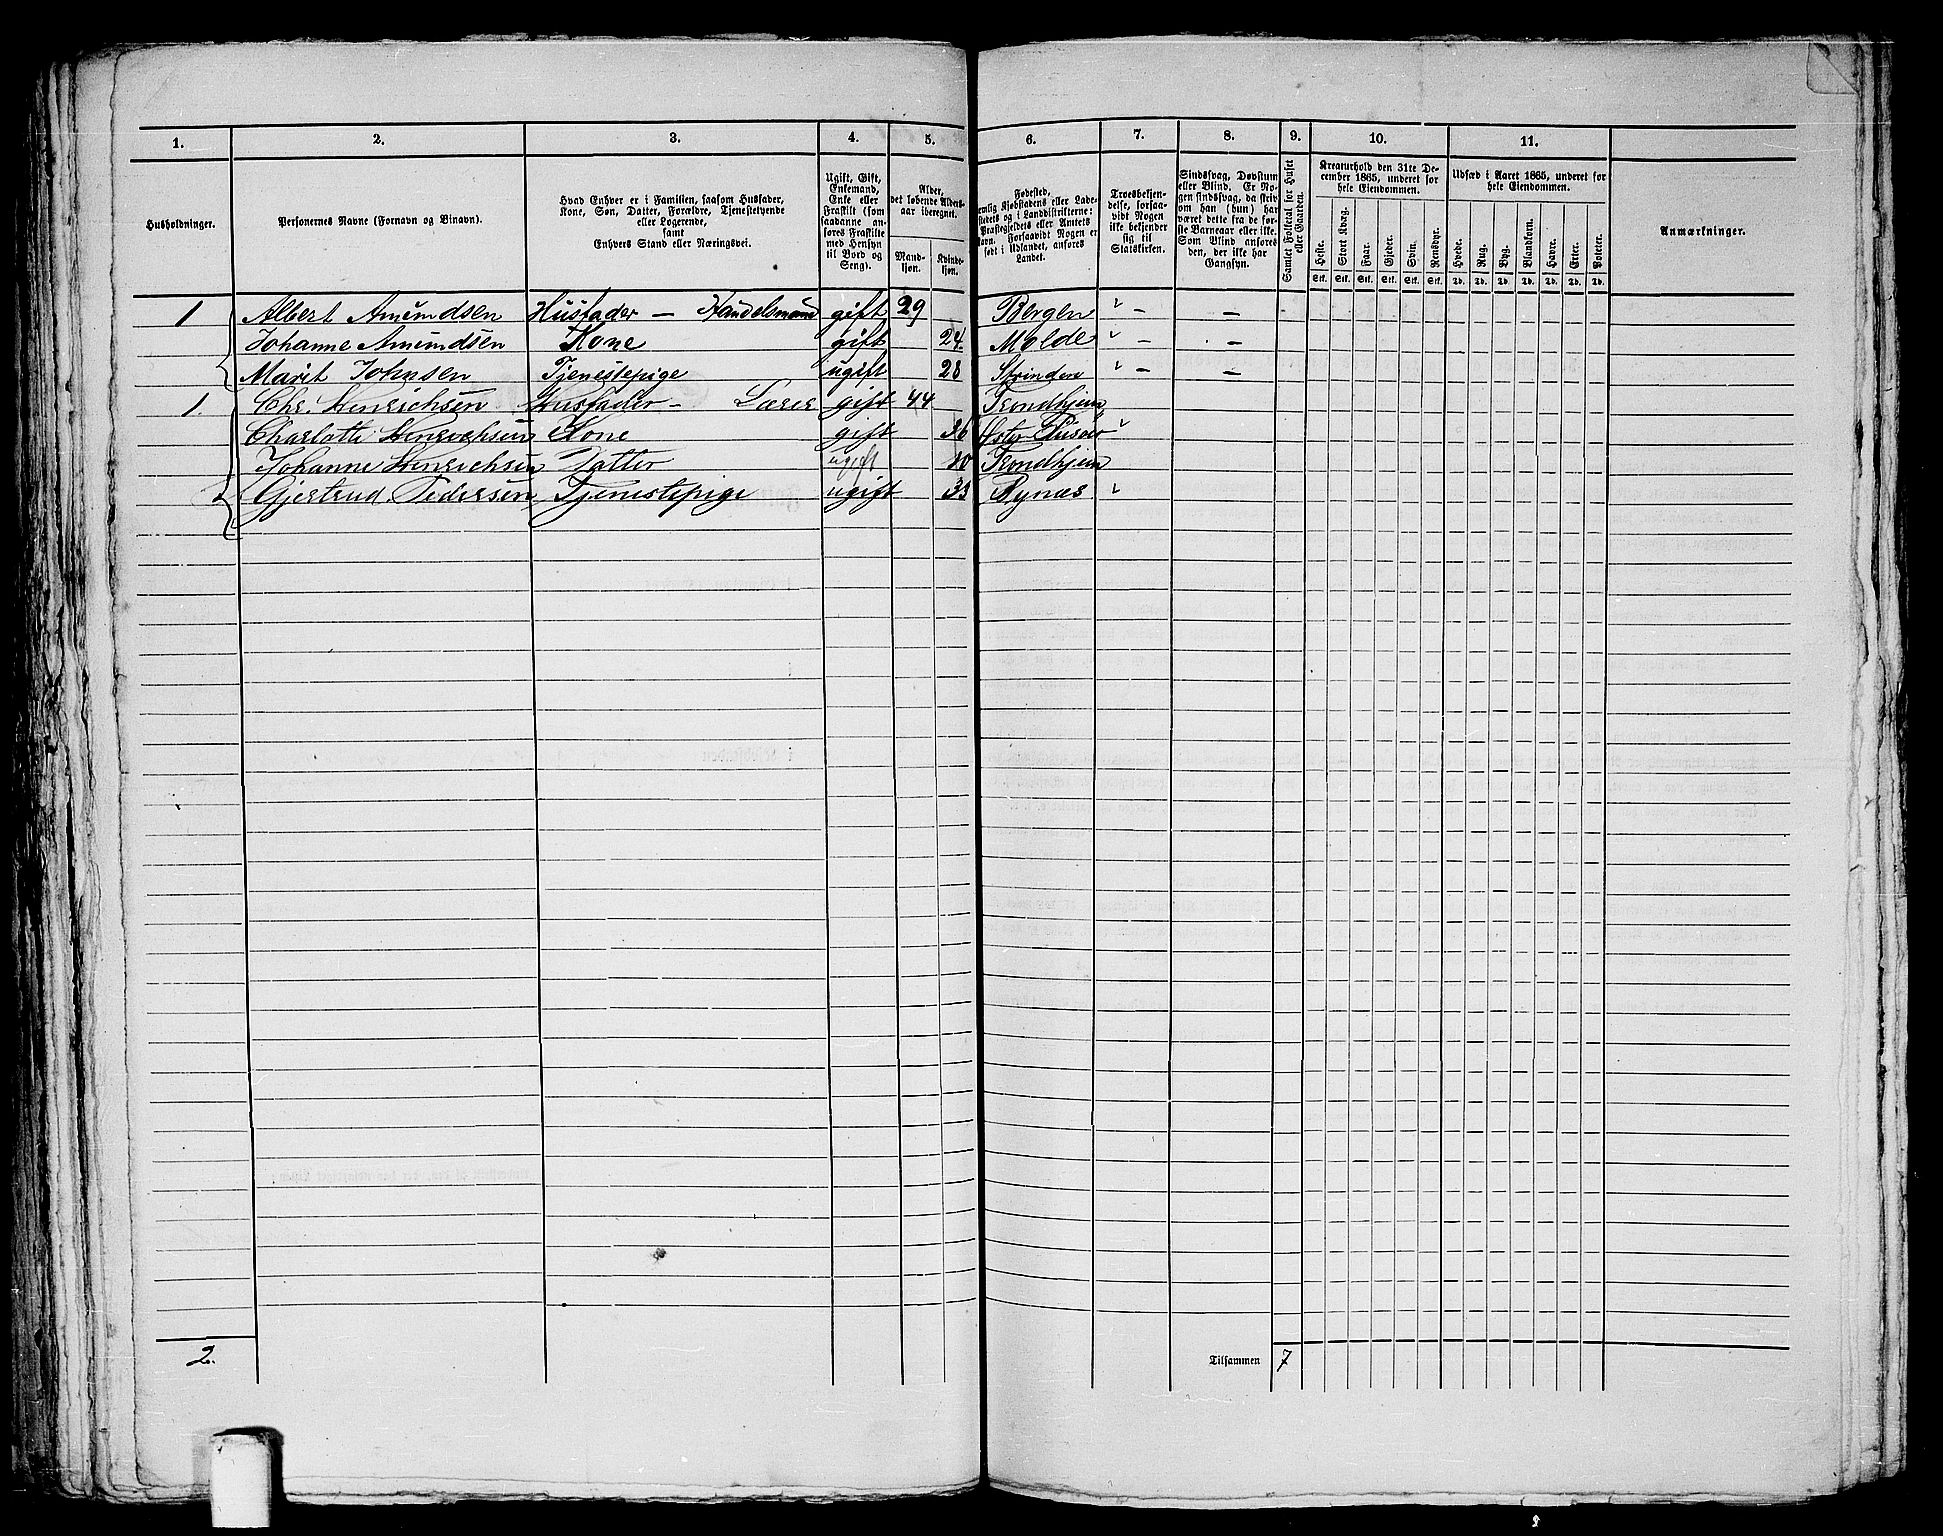 1. 2. 3. 4. 5. 6. 7. 8. 9. 10. 11.
Husholdninger.
Personernes Navne (Fornavn og Binavn).
Hvad Enhver er i Familien, saasom Husfader,
Kone, Søn, Datter, Forældre, Tjenestetyende
eller Logerende,
samt
Enhvers Stand eller Næringsvei.
Ugift, Gift,
Enkemand,
Enke eller
Fraskilt (som
saadanne an-
føres Fraskilte
med Hensyn
til Bord og
Seng).
Alder,
det løbende Alders-
aar iberegnet.
Mand-
kjøn.
Kvinde-
kjøn.
Fødested,
nemlig Kjøbstadens eller Lade-
stedets og i Landdistrikterne:
Præstegjeldets eller Amtets
Navn. Forsaavidt Nogen er
født i Udlandet, anføres
Landet.
Troesbekjen-
delse, forsaa-
vidt Nogen
ikke bekjender
sig til
Statskirken.
Sindssvag, Døvstum
eller Blind. Er No-
gen sindssvag, da skriv
om han (hun) har
været dette fra de før-
ste Barneaar eller ikke.
Som Blind anføres
den, der ikke har
Gangsyn.
Samlet Folketal for Huset
eller Gaarden.
Kreaturhold den 31te De-
cember 1865, underet for
hele Eiendommen.
Heste. Stort Kvæg. Faar. Gjeder. Svin. Rensdyr.
Stk. Stk. Stk. Stk. Stk. Stk.
Udsæd i Aaret 1865, underet for
hele Eiendommen.
Hvede. Rug. Byg. Blandkorn. Havre. Erter. Poteter.
Td. Td. Td. Td. Td. Td. Td.
Anmærkninger.
1 Albert Amundsen Husfader — Handelsmand gift 29 Bergen — —
Johanne Amundsen Kone gift 24. Molde — —
Marit Johnsen Tjenestepige ugift 28 Strinden — —
1. Chr. Henrichsen Husfader — Lærer gift 44 Trondhjem
Charlotte Henrichsen Kone gift 36 Øster Riisøer
Johanne Henrichsen Datter ugift 10 Trondhjem
Gjertrud Pedersen Tjenestepige ugift 33 Bynæs
2. Tilsammen 7